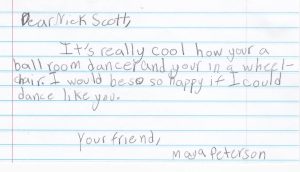 Dear Nick Scott,
It's really cool how your a
ball room dancer and your in a wheel-
chair. I would be so so happy if I could
dance like you.
Your friend,
Maya Peterson